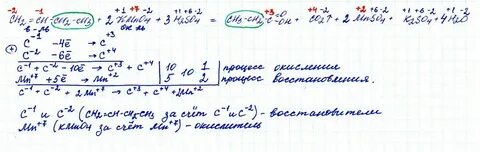 -2 -1 +1 +7 -2 +1 +6 -2 +3 +4 -2 +2 +6 -2 +1 +6 -2
CH₂=CH-CH₂-CH₃ + 2 KMnO₄ + 3 H₂SO₄ → CH₃-CH₂-C=O-OH + CO₂↑ + 2 MnSO₄ + K₂SO₄ + 4H₂O
в-ль ок-ль
C⁻¹ -4ē → C⁺³
+ C⁻² -6ē → C⁺⁴
C⁻¹ + C⁻² -10ē → C⁺³ + C⁺⁴ | 10 | 10 | 1 процесс окисления
Mn⁺⁷ +5ē → Mn⁺² | 5 | 2 процесс восстановления.
C⁻¹ + C⁻² + 2Mn⁺⁷ → C⁺³ + C⁺⁴ + 2Mn⁺²
C⁻¹ и C⁻² (CH₂=CH-CH₂CH₃ за счёт C⁻¹ и C⁻²) - восстановители
Mn⁺⁷ (KMnO₄ за счёт Mn⁺⁷) - окислитель